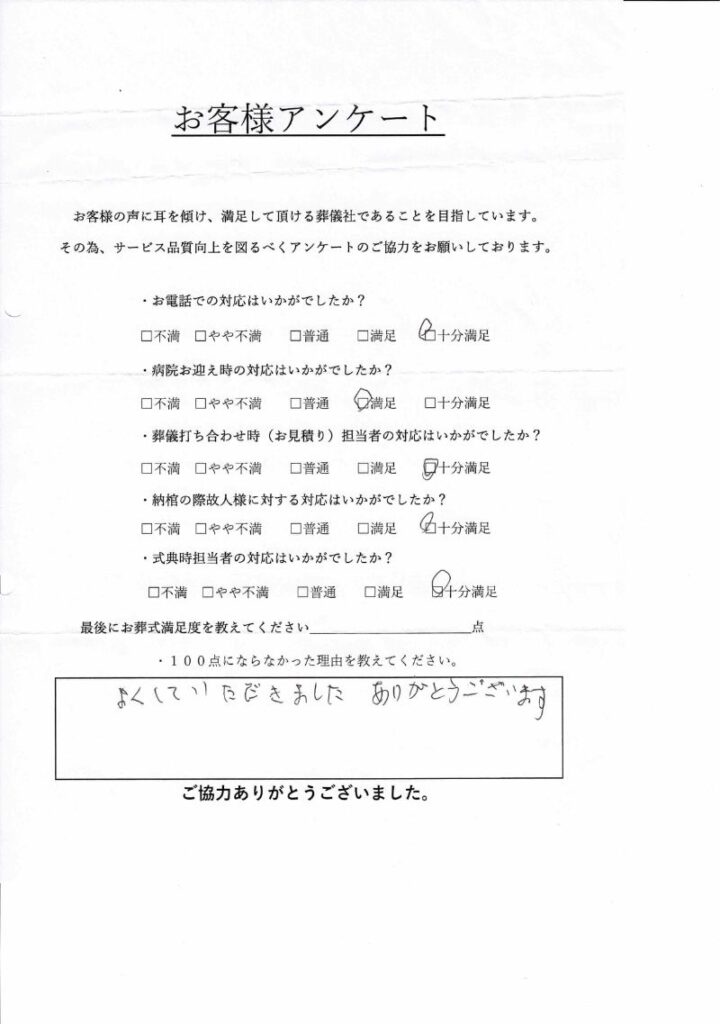 お客様アンケート
お客様の声に耳を傾け、満足して頂ける葬儀社であることを目指しています。
その為、サービス品質向上を図るべくアンケートのご協力をお願いしております。
・お電話での対応はいかがでしたか？
□不満 □やや不満 □普通 □満足 □十分満足
・病院お迎え時の対応はいかがでしたか？
□不満 □やや不満 □普通 □満足 □十分満足
・葬儀打ち合わせ時（お見積り）担当者の対応はいかがでしたか？
□不満 □やや不満 □普通 □満足 □十分満足
・納棺の際故人様に対する対応はいかがでしたか？
□不満 □やや不満 □普通 □満足 □十分満足
・式典時担当者の対応はいかがでしたか？
□不満 □やや不満 □普通 □満足 □十分満足
最後にお葬式満足度を教えてください____________________点
・１００点にならなかった理由を教えてください。
よくしていただきました ありがとうございます
ご協力ありがとうございました。